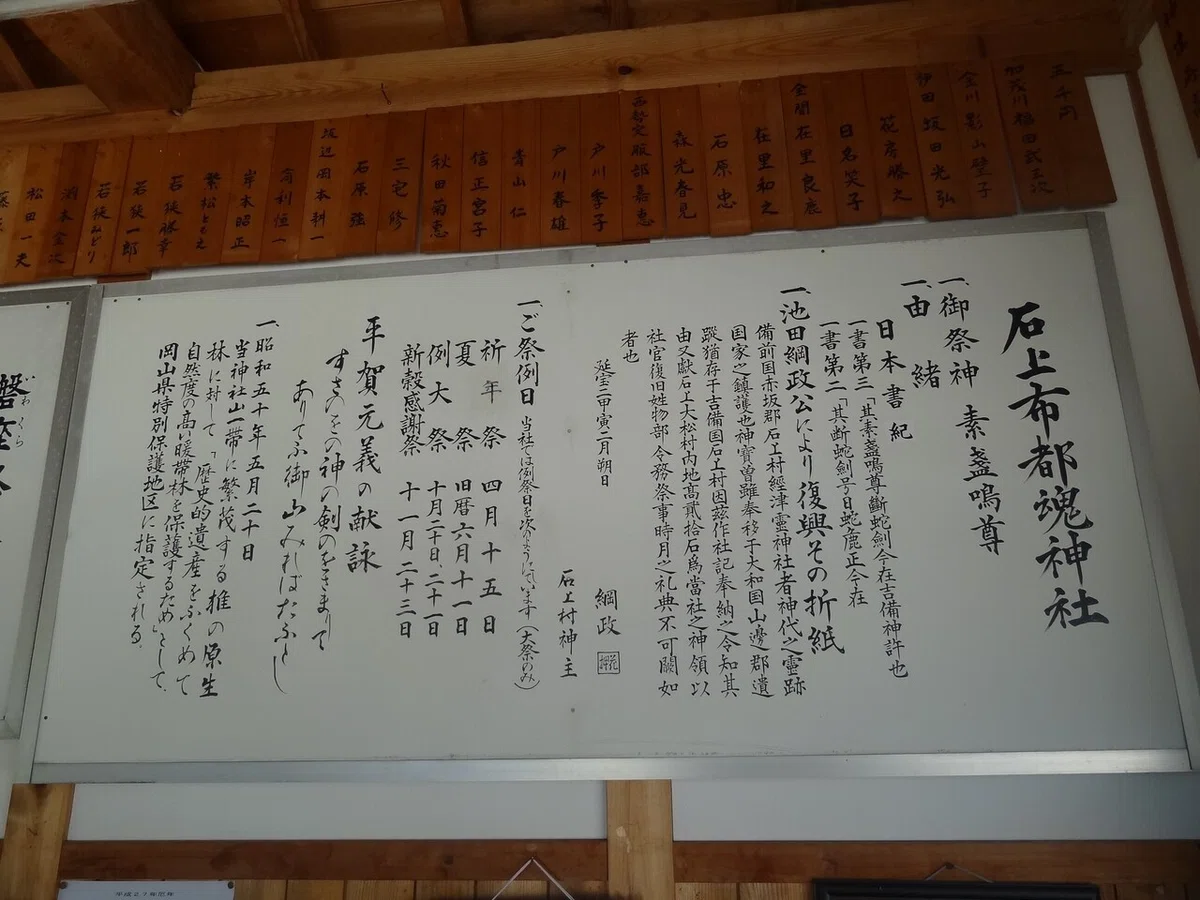 五千円
加茂川福田武三次
金川影山壁子
伊田坂田光弘
花房勝之
日名笑子
金関在里良鹿
在里和之
石原忠
森光春見
西勢実服部嘉恵
戸川季子
戸川春雄
青山仁
信正宮子
秋田菊恵
三宅修
石原強
坂辺岡本耕一
有利恒一
岸本昭正
繁松ともえ
若狭勝幸
若狭一郎
若狭みどり
渕本金次
松田一夫
石上布都魂神社
一、御祭神 素盞鳴尊
一、由緒
日本書紀
一書第三「其素盞鳴尊斷蛇劍今在吉備神許也
一書第二「其断蛇釼号曰蛇麁正今在
一、池田綱政公により復興その折紙
備前国赤坂郡石上村經津霊神社者神代之霊跡
国家之鎮護也神寳曽雖奉移于大和国山邊郡遺
蹤猶存于吉備国石上村因茲作社記奉納之令知其
由又獻石上大松村内地高貳拾石爲當社之神領以
社官復旧姓物部令務祭事時月之礼典不可闕如
者也
延宝二甲寅二月朔日
綱政
石上村神主
一、ご祭例日 当社では例祭日を次のようにしています(大祭のみ)
祈年祭 四月十五日
夏祭 旧暦六月十一日
例大祭 十月二十日、二十一日
新穀感謝祭 十一月二十三日
平賀元義の献詠
すさのをの神の剣のをさまりて
ありてふ御山みればたふとし
一、昭和五十年五月二十日
当神社山一帯に繁茂する椎の原生
林に対して「歴史的遺産をふくめて
自然度の高い暖帯林を保護するため」として、
岡山県特別保護地区に指定される。
磐座
いわくら
平成27年